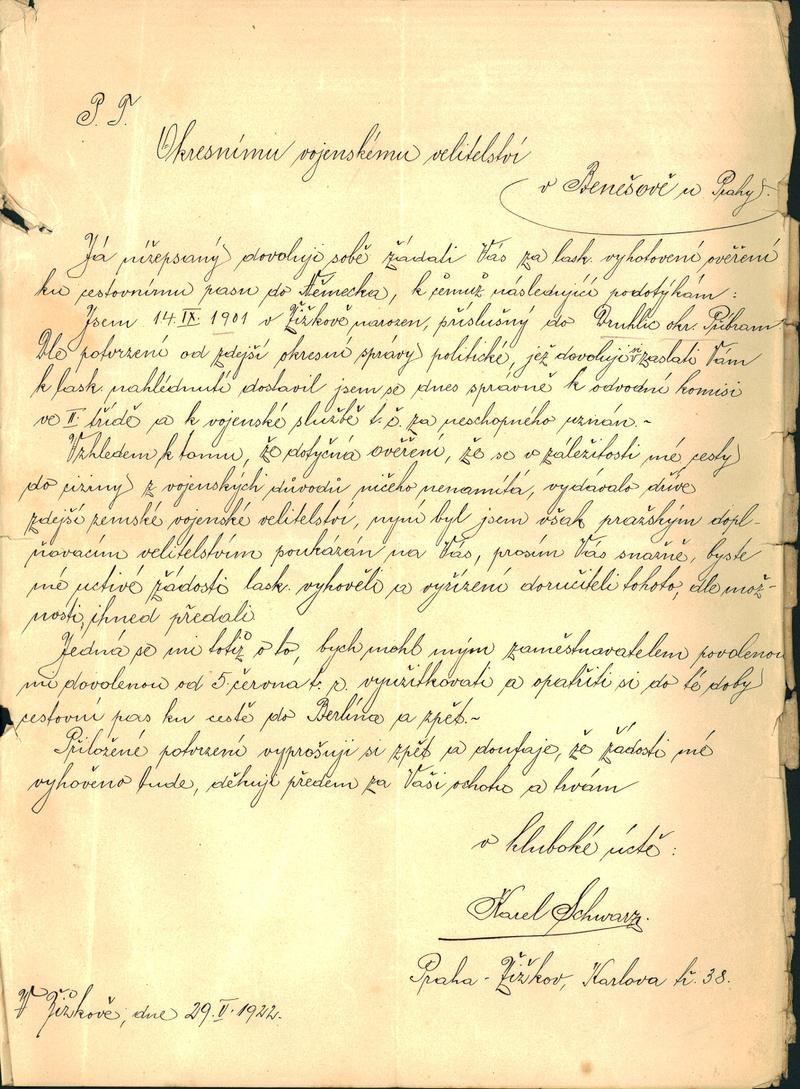 P. T.
Okresnímu vojenskému velitelství
v Benešově u Prahy.
Já nížepsaný dovoluji sobě žádati Vás za lask. vyhotovení ověření
ku cestovnímu pasu do Německa, k čemuž následující podotýkám:
Jsem 14. IX. 1901 v Žižkově narozen, příslušný do Druhlic okr. Příbram
Dle potvrzení od zdejší okresní správy politické, jež dovoluji si zaslati Vám
k lask. nahlédnutí dostavil jsem se dnes správně k odvodní komisi
ve II. třídě a k vojenské službě t. č. za neschopného uznán.-
Vzhledem k tomu, že dotyčná ověření, že se v záležitosti mé cesty
do ciziny z vojenských důvodů ničeho nenamítá, vydávalo dříve
zdejší zemské vojenské velitelství, nyní byl jsem však pražským dopl-
ňovacím velitelstvím poukázán na Vás, prosím Vás snažně, byste
mé uctivé žádosti lask. vyhověli a vyřízení doručiteli tohoto, dle mož-
nosti, ihned předali.
Jedná se mi totiž o to, bych mohl mým zaměstnavatelem povolenou
mi dovolenou od 5. června t. r. využitkovati a opatřiti si do té doby
cestovní pas ku cestě do Berlína a zpět.-
Přiložené potvrzení vyprošuji si zpět a doufaje, že žádosti mé
vyhověno bude, děkuji předem za Vaši ochotu a trvám
v hluboké úctě:
Karel Schwarz.
Praha - Žižkov, Karlova tř. 38.
V Žižkově, dne 29. V. 1922.